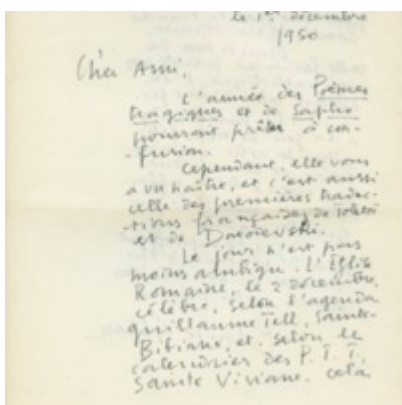 le 1er décembre
1950
Cher Ami,
L'année des Poèmes
tragiques et de Sapho
pourrait prêter à con-
-fusion.
Cependant, elle vous
a vu naître, et c'est aussi
celle des premières traduc-
-tions françaises de Tolstoï
et de Dostoïevski.
Le jour n'est pas
moins ambigu. L'Eglise
Romaine, le 2 décembre,
célèbre, selon l'agenda
Guillaume Tell, Sainte-
Bibiane, et, selon le
calendrier des P. T. T.,
Sainte Viviane. Cela